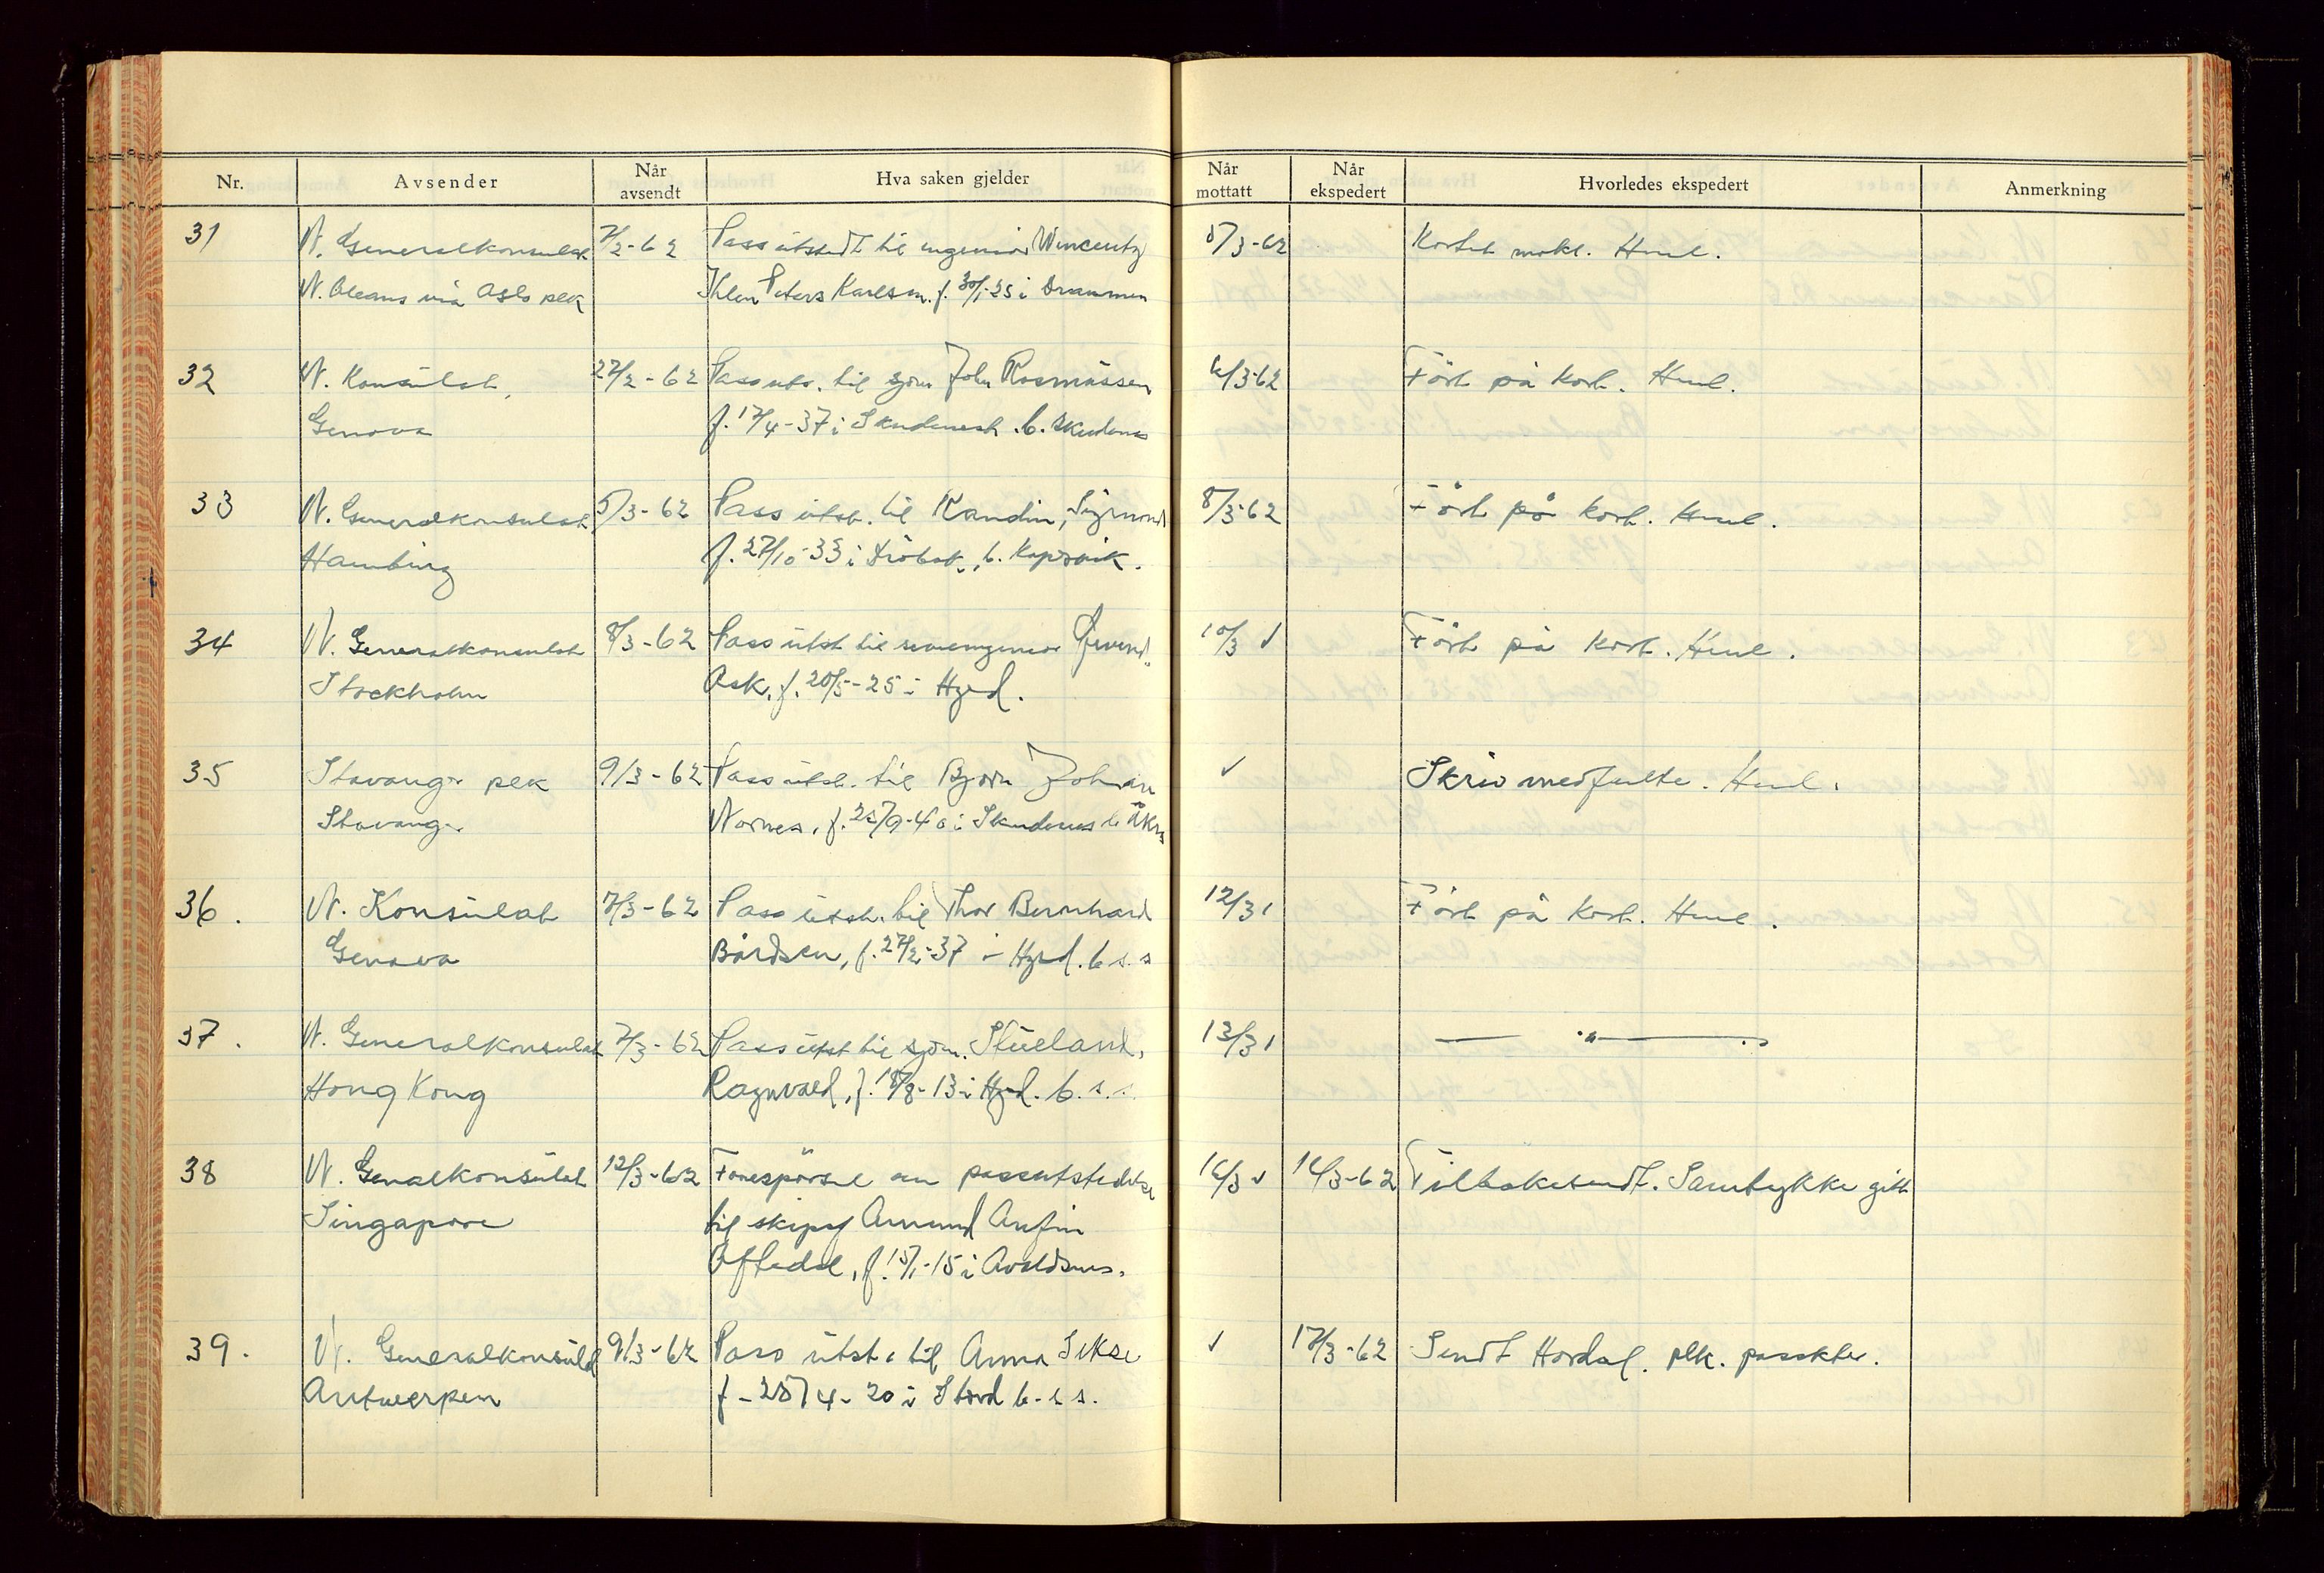 Nr. Avsender Når avsendt Hva saken gjelder Når mottatt Når ekspedert Hvorledes ekspedert Anmerkning
31 N. Generalkonsulat 7/2-62 Pass utstedt til ingeniør Wincentz 5/3-62 Hnl.
N. Oleans via Oslo pck Peters Karlsen. f. 30/1-25 i Drammen
32 N. Konsulat, 27/2-62 Pass uts. til sjøm John Rasmussen 6/3-62 Ført på kort. Hnl.
Genova f. 17/4-37 i Skudenesh. b. Skudenes
33 N. Generalkonsulat 5/3-62 Pass utst. til Kandin, Sigmund 8/3-62 Ført på kort. Hnl.
Hamburg f. 27/10-33 i b. Kopervik.
34 N. Generalkonsulat 8/3-62 Pass utst til Øivind 10/3 ✓ Ført på kort. Hnl.
Stockholm Ask, f. 20/5-25 i Hgsd.
35 Stavanger pck 9/3-62 Pass utst. til Bjørn Johan ✓ Skriv medfulte. Hnl.
Stavanger Nornes, f. 25/9-40 i Skudenes b. Åkra
36. N. Konsulat 7/3-62 Pass utst. til Thor Bernhard 12/3 Ført på kort. Hnl.
Genova Bårdsen, f. 27/2-37 i Hgsd. b s. s
37. N. Generalkonsulat 7/3-62 Pass utst til sjøm. Stueland, 13/3 — " —
Hong Kong Ragnvald, f. 18/8-13 i Hgsd. b. s. s.
38 N. Genalkonsulat 12/3-62 Forespørsel om passutstedelse 16/3 ✓ 16/3-62 Tilbakesendt. Samtykke gitt
Singapore til skipsf Amund Anfin
Aftedal, f. 15/1-15 i Avaldsnes.
39. N. Generalkonsulat 9/3-62 Pass utst. til Anna Sekse ✓ 17/3-62 Sendt Hordal. plk. passktr.
Antwerpen f - 28/4-20 i Stord b. s s.